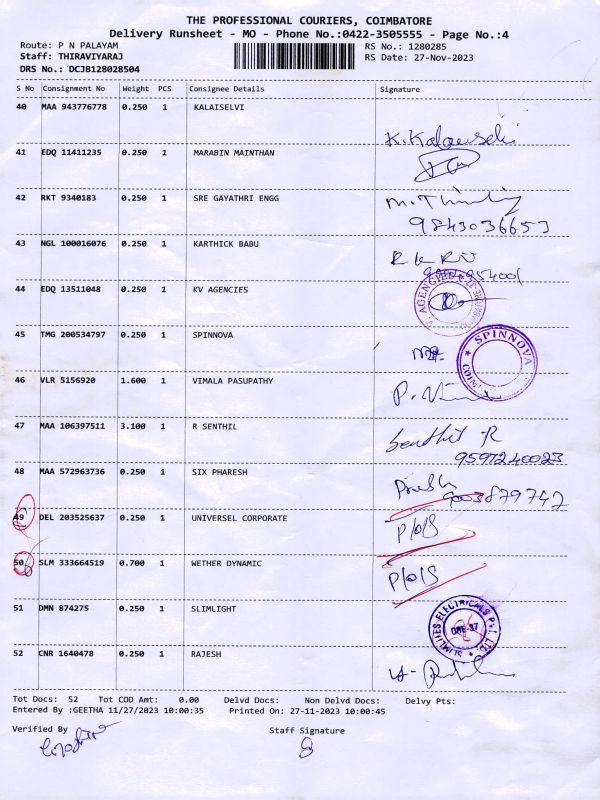 THE PROFESSIONAL COURIERS, COIMBATORE
Delivery Runsheet - MO - Phone No.:0422-3505555 - Page No.:4
Route: P N PALAYAM RS No.: 1280285
Staff: THIRAVIYARAJ RS Date: 27-Nov-2023
DRS No.: DCJB128028504
S No Consignment No Weight PCS Consignee Details Signature
40 MAA 943776778 0.250 1 KALAISELVI
K. Kalaiselvi
41 EDQ 11411235 0.250 1 MARABIN MAINTHAN
42 RKT 9340183 0.250 1 SRE GAYATHRI ENGG
9843036653
43 NGL 100016076 0.250 1 KARTHICK BABU
44 EDQ 13511048 0.250 1 KV AGENCIES
V. AGENCIES
45 TMG 200534797 0.250 1 SPINNOVA
SPINNOVA
46 VLR 5156920 1.600 1 VIMALA PASUPATHY
47 MAA 106397511 3.100 1 R SENTHIL
Senthil R
9597240023
48 MAA 572963736 0.250 1 SIX PHARESH
9003879742
49 DEL 203525637 0.250 1 UNIVERSEL CORPORATE
P/o/s
50 SLM 333664519 0.700 1 WETHER DYNAMIC
P/o/s
51 DMN 874275 0.250 1 SLIMLIGHT
SLIMLITES ELECTRICALS PVT. LTD.
52 CNR 1640478 0.250 1 RAJESH
Tot Docs: 52 Tot COD Amt: 0.00 Delvd Docs: Non Delvd Docs: Delvy Pts:
Entered By :GEETHA 11/27/2023 10:00:35 Printed On: 27-11-2023 10:00:45
Verified By Staff Signature